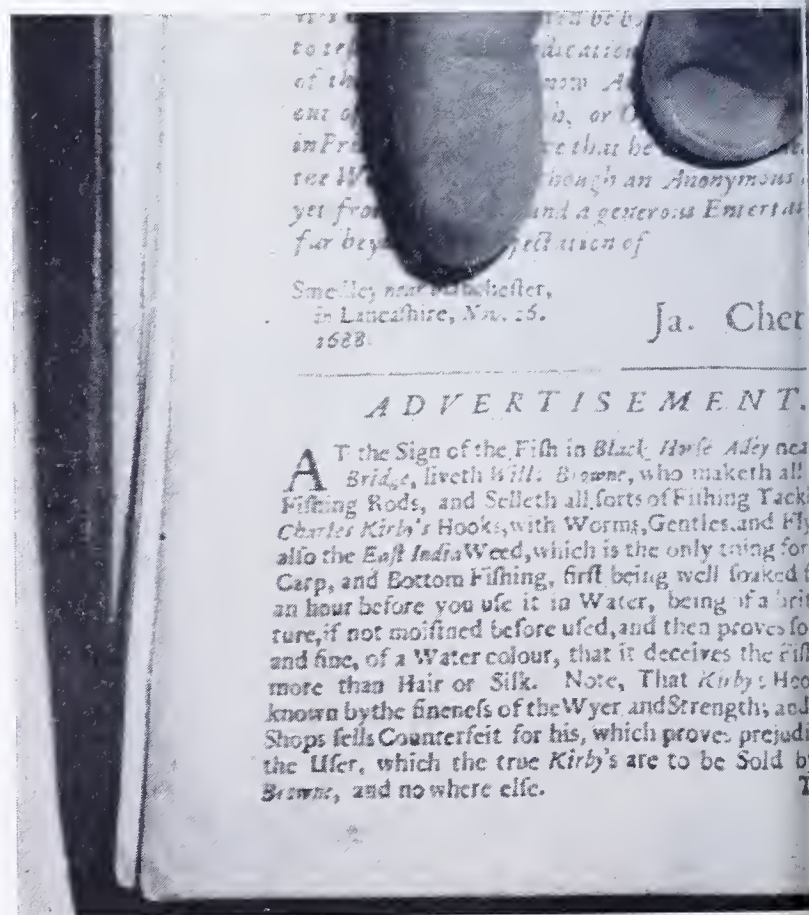 will be b
to
dication
of th
A
out of
or O
in Fre
that be
the W
hough an Anonymous
yet fro
and a generous Entert
far bey
ectation of
Smedley near Manchester,
in Lancashire, Nov. 26.
1688.
Ja. Chet
ADVERTISEMENT.
AT the Sign of the Fiſh in Black Horſe Alley nea
Bridge, liveth Will. Browne, who maketh all
Fiſhing Rods, and Selleth all ſorts of Fiſhing Tackl
Charles Kirby's Hooks, with Worms, Gentles, and Fly
alſo the Eaſt India Weed, which is the only thing for
Carp, and Bottom Fiſhing, firſt being well ſoaked
an hour before you uſe it in Water, being of a brit
ture, if not moiſtned before uſed, and then proves ſo
and fine, of a Water colour, that it deceives the Fiſh
more than Hair or Silk. Note, That Kirby's Hoo
known by the fineneſs of the Wyer and Strength; and
Shops ſells Counterfeit for his, which proves prejudi
the Uſer, which the true Kirby's are to be Sold by
Browne, and no where elſe. T